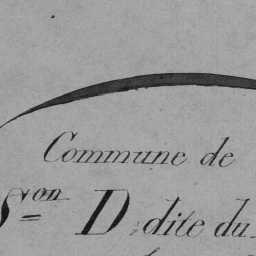 Commune de
S^on D dite du